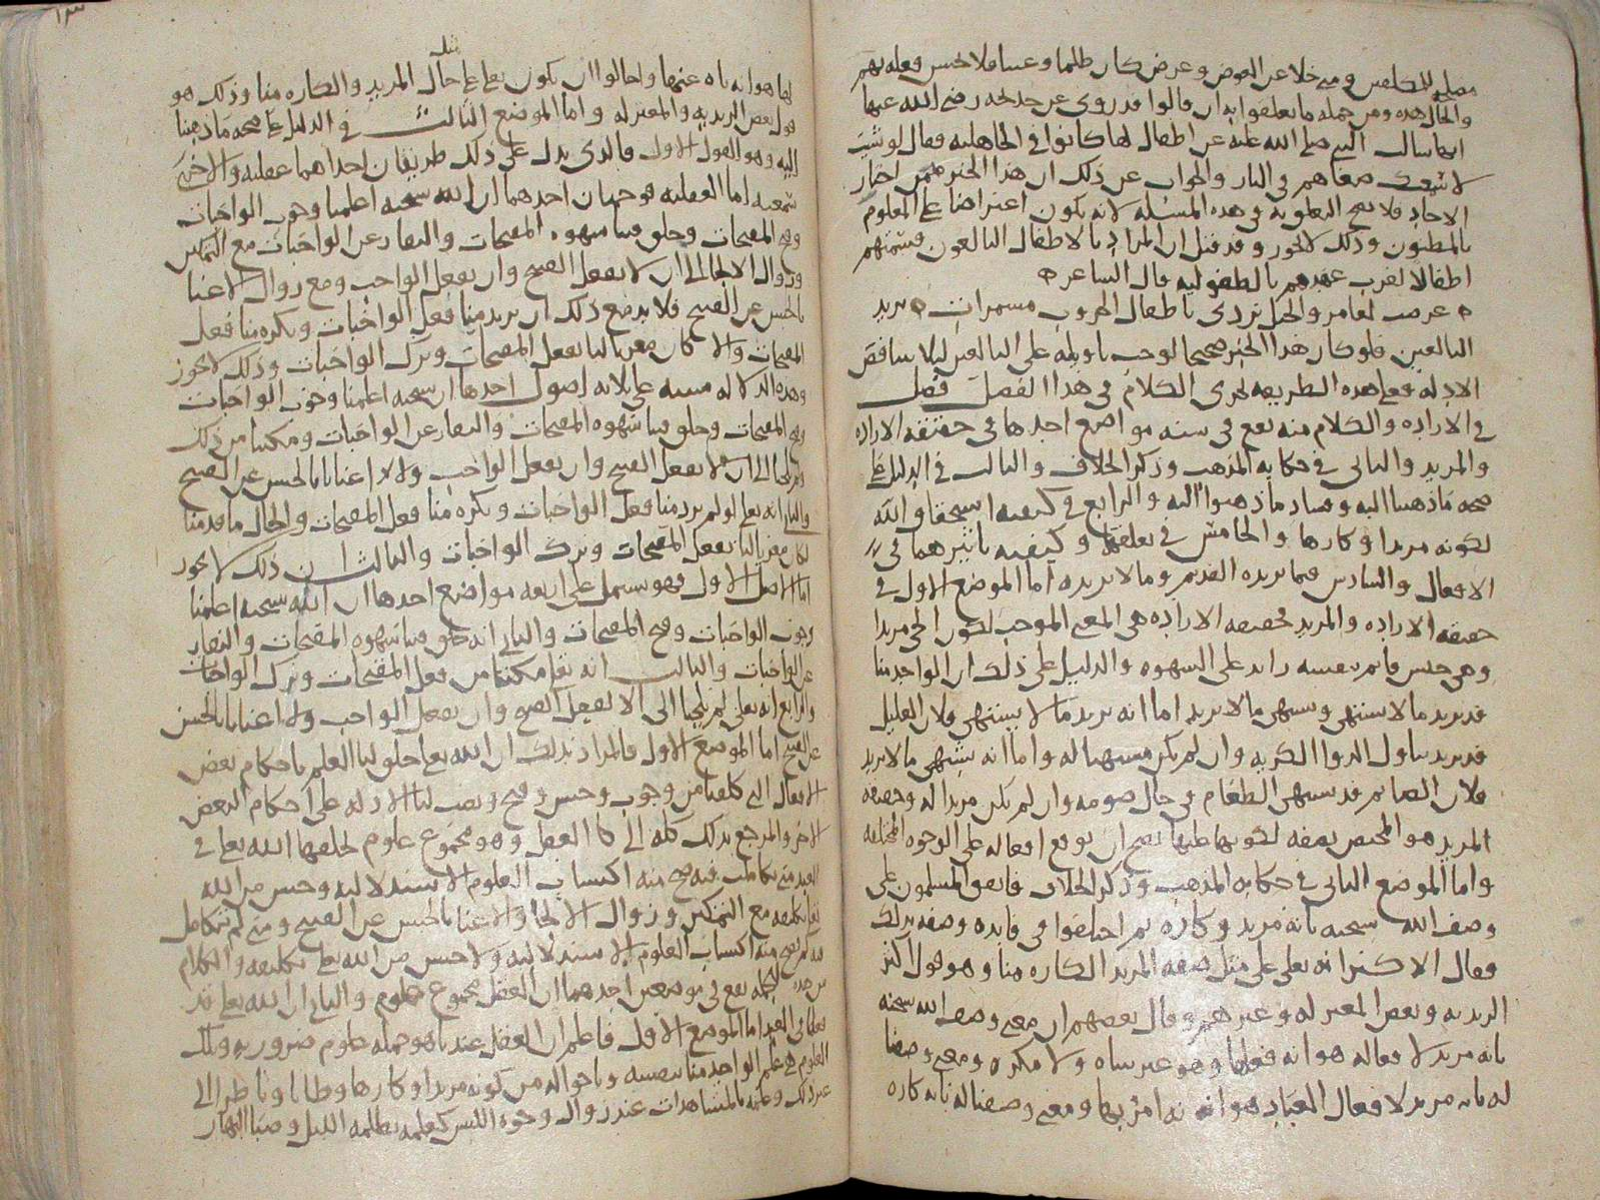 للمكلفين ومتى خلا عن العوض وعرض كان ظلما وعبثا فلا يحسن فعله بهم
والحال هذه ومن جملة ما تعلقوا به ان قالوا قد روي عن خديجة رضي الله عنها
انها سالت النبي صلى الله عليه عن اطفال لها كانوا في الجاهلية فقال لو شئت
لاسمعتك ضغاهم في النار والجواب عن ذلك ان هذا الخبر من اخبار
الاحاد فلا يصح التعلق به في هذه المسئلة لانه يكون اعتراضا على المعلوم
بالمظنون وذلك لا يجوز وقد قيل ان المراد بالاطفال البالغون فسمتهم
اطفالا لقرب عهدهم بالطفولية قال الشاعر
عرضت لعامر والخيل تردي باطفال الحروب مشمرات يريد
البالغين فلو كان هذا الخبر صحيحا لوجب تاويله على البالغين ليلا يناقض
الادلة فعلى هذه الطريقة يجري الكلام في هذا الفصل فصل
في الارادة والكلام منه يقع في ستة مواضع احدها في حقيقة الارادة
والمريد والثاني في حكاية المذهب وذكر الخلاف والثالث في الدليل على
صحة ما ذهبنا اليه وفساد ما ذهبوا اليه والرابع في كيفية استحقاق الله
لكونه مريدا وكارها والخامس في تعلقهما وكيفية تاثيرهما في
الافعال والسادس فيما يريده القديم وما لا يريده اما الموضع الاول في
حقيقة الارادة والمريد فحقيقة الارادة هي المعنى الموجب لكون الحي مريدا
وهي جنس قائم بنفسه زائد على الشهوة والدليل على ذلك ان الواحد منا
قد يريد ما لا يشتهي ويشتهي ما لا يريد اما انه يريد ما لا يشتهي فلان العليل
قد يريد تناول الدوا الكريه وان لم يكن مشتهيا له واما انه يشتهي ما لا يريد
فلان الصائم قد يشتهي الطعام في حال صومه وان لم يكن مريدا له وحقيقة
المريد هو المختص بصفة لكونه عليها يصح ان يوقع افعاله على الوجوه المختلفة
واما الموضع الثاني في حكاية المذهب وذكر الخلاف فاتفق المسلمون على
وصف الله سبحنه بانه مريد وكاره ثم اختلفوا في فايدة وصفه بذلك
فقال الاكثر انه تعلى على مثل صفة المريد الكاره منا وهو قول اكثر
الزيدية وبعض المعتزلة وغيرهم وقال بعضهم ان معنى وصف الله سبحنه
بانه مريد لافعاله هو انه فعلها وهو غير ساه ولا مكره ومعنى وصفنا
له بانه مريد لافعال العباد هو انه امر بها ومعنى وصفنا له بانه كاره
لها هو انه ناه عنها واحالوا ان يكون تعلى على مثل حال المريد والكاره منا وذلك هو
قول بعض الزيدية والمعتزلة واما الموضع الثالث في الدليل على صحة ما ذهبنا
اليه وهو القول الاول فالذي يدل على ذلك طريقان احداهما عقلية والاخرى
سمعية اما العقلية فوجهان احدهما ان الله سبحنه اعلمنا وجوب الواجبات
وقبح المقبحات وخلق فينا شهوة المقبحات والنفار عن الواجبات مع التمكين
وزوال الالجا الى ان لا نفعل القبيح وان نفعل الواجب ومع زوال الاغنا
بالحسن عن القبيح فلا بد مع ذلك ان يريد منا فعل الواجبات ويكره منا فعل
المقبحات والا كان مغريا لنا بفعل المقبحات وترك الواجبات وذلك لا يجوز
وهذه الدلالة مبنية على ثلاثة اصول احدها ان سبحنه اعلمنا وجوب الواجبات
وقبح المقبحات وخلق فينا شهوة المقبحات والنفار عن الواجبات ومكننا من ذلك
ولم يلجا الى ان لا نفعل القبيح وان نفعل الواجب ولا اغنانا بالحسن عن القبيح
والثاني انه تعلى لو لم يرد منا فعل الواجبات ويكره منا فعل المقبحات والحال ما قدمنا
لكان مغريا لنا بفعل المقبحات وترك الواجبات والثالث ان ذلك لا يجوز
اما الاصل الاول فهو يشتمل على اربعة مواضع احدها ان الله سبحنه اعلمنا
وجوب الواجبات وقبح المقبحات والثاني انه خلق فينا شهوة المقبحات والنفار
عن الواجبات والثالث انه تعلى مكننا من فعل المقبحات وترك الواجبات
والرابع انه تعلى لم يلجنا الى الا نفعل القبيح وان نفعل الواجب ولا اغنانا بالحسن
عن القبيح اما الموضع الاول فالمراد بذلك ان الله تعلى خلق لنا العلم باحكام بعض
الافعال التي كلفنا من وجوب وحسن وقبح ونصب لنا الادلة على احكام البعض
الاخر والمرجع بذلك كله الى كمال العقل وهو مجموع علوم يخلقها الله تعلى في
العبد متى تكاملت فيه صح منه اكتساب العلوم الاستدلالية وحسن من الله
تعلى تكليفه مع التمكين وزوال الالجا والاغنا بالحسن عن القبيح ومتى لم تتكامل
فيه لم يصح منه اكتساب العلوم الاستدلالية ولا حسن من الله تعلى تكليفه والكلام
من هذه الجملة يقع في موضعين احدهما ان العقل مجموع علوم والثاني ان الله تعلى قد
فعلها في العبد اما الموضع الاول فاعلم ان العقل عندنا هو جملة علوم ضرورية وتلك
العلوم هي علم الواحد منا بنفسه وباحواله من كونه مريدا وكارها وظانا وناظرا الى
غير ذلك وعلمه بالمشاهدات عند زوال وجوه اللبس كعلمه بظلمة الليل وضيا النهار